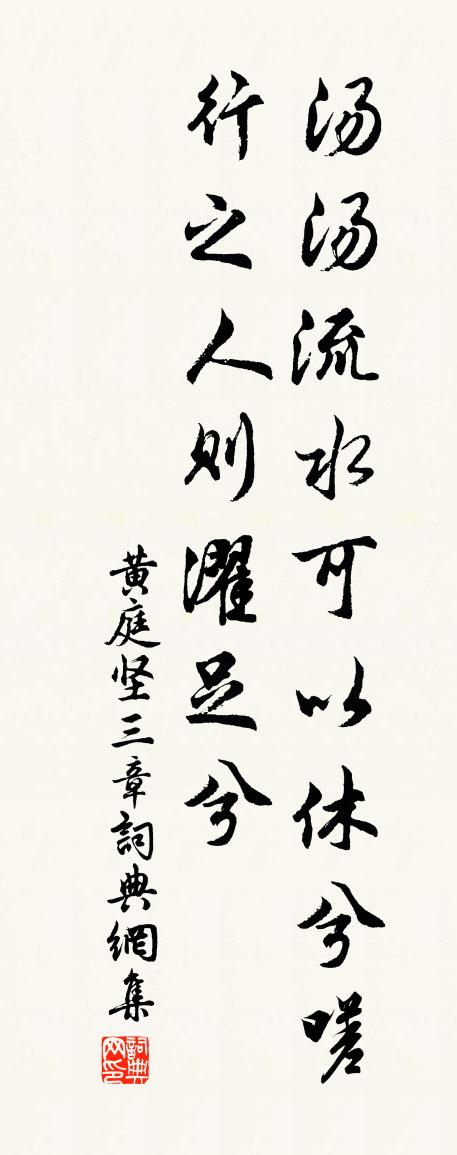 汤汤流水可以休兮嗟
行之人则濯足兮
黄庭坚三章詞典網集
詞典网印